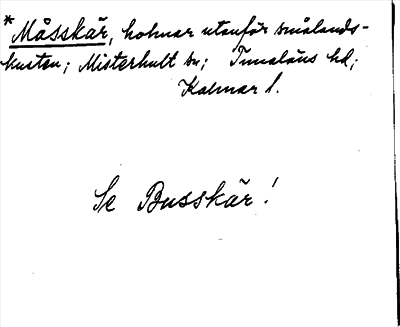 *Måsskär, holmar utanför smålands-
kusten; Misterhult sn; Tunaläns hd;
Kalmar l.
Se Busskär!